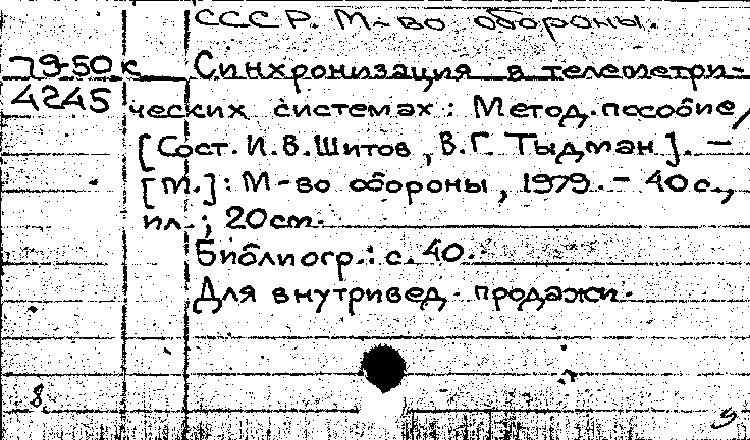 СССР. М-во обороны.
79-50к Синхронизация в телеметри-
4245 ческих системах: Метод. пособие/
[Сост. И.В.Шитов, В.Г. Тыдман]. —
[М.]: М-во обороны, 1979. - 40с.,
ил.; 20см.
Библиогр.: с. 40.
Для внутривед. продажи.
8